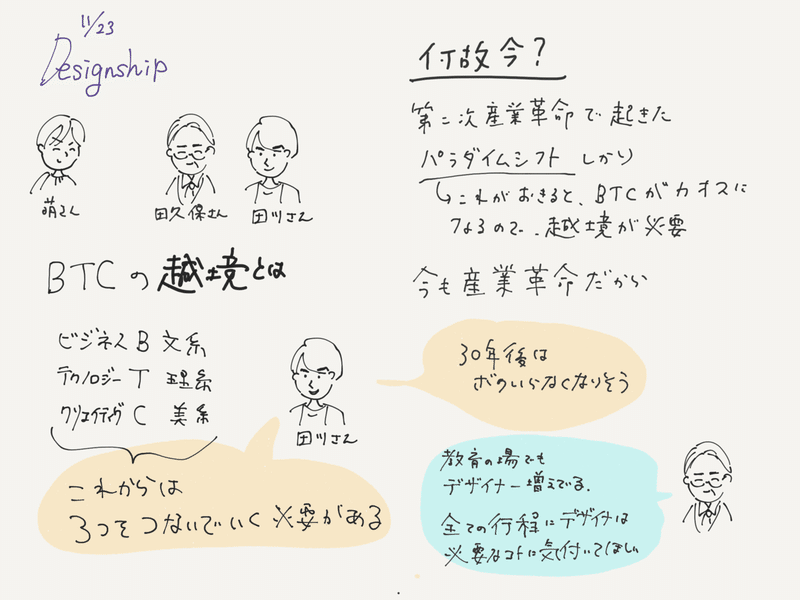 11/23
Designship
萌さん
田久保さん
田川さん
BTCの越境とは
ビジネス B 文系
テクノロジー T 理系
クリエイティヴ C 美系
田川さん
これからは
3つをつないでいく必要がある
何故今?
第二次産業革命で起きた
パラダイムシフト しかり
これがおきると、BTCがカオスに
なるので、越境が必要
今も産業革命だから
30年後は
ボクのいらなくなりそう
教育の場でも
デザイナー増えてる。
全ての行程にデザイナは
必要なコトに気付いてほしい